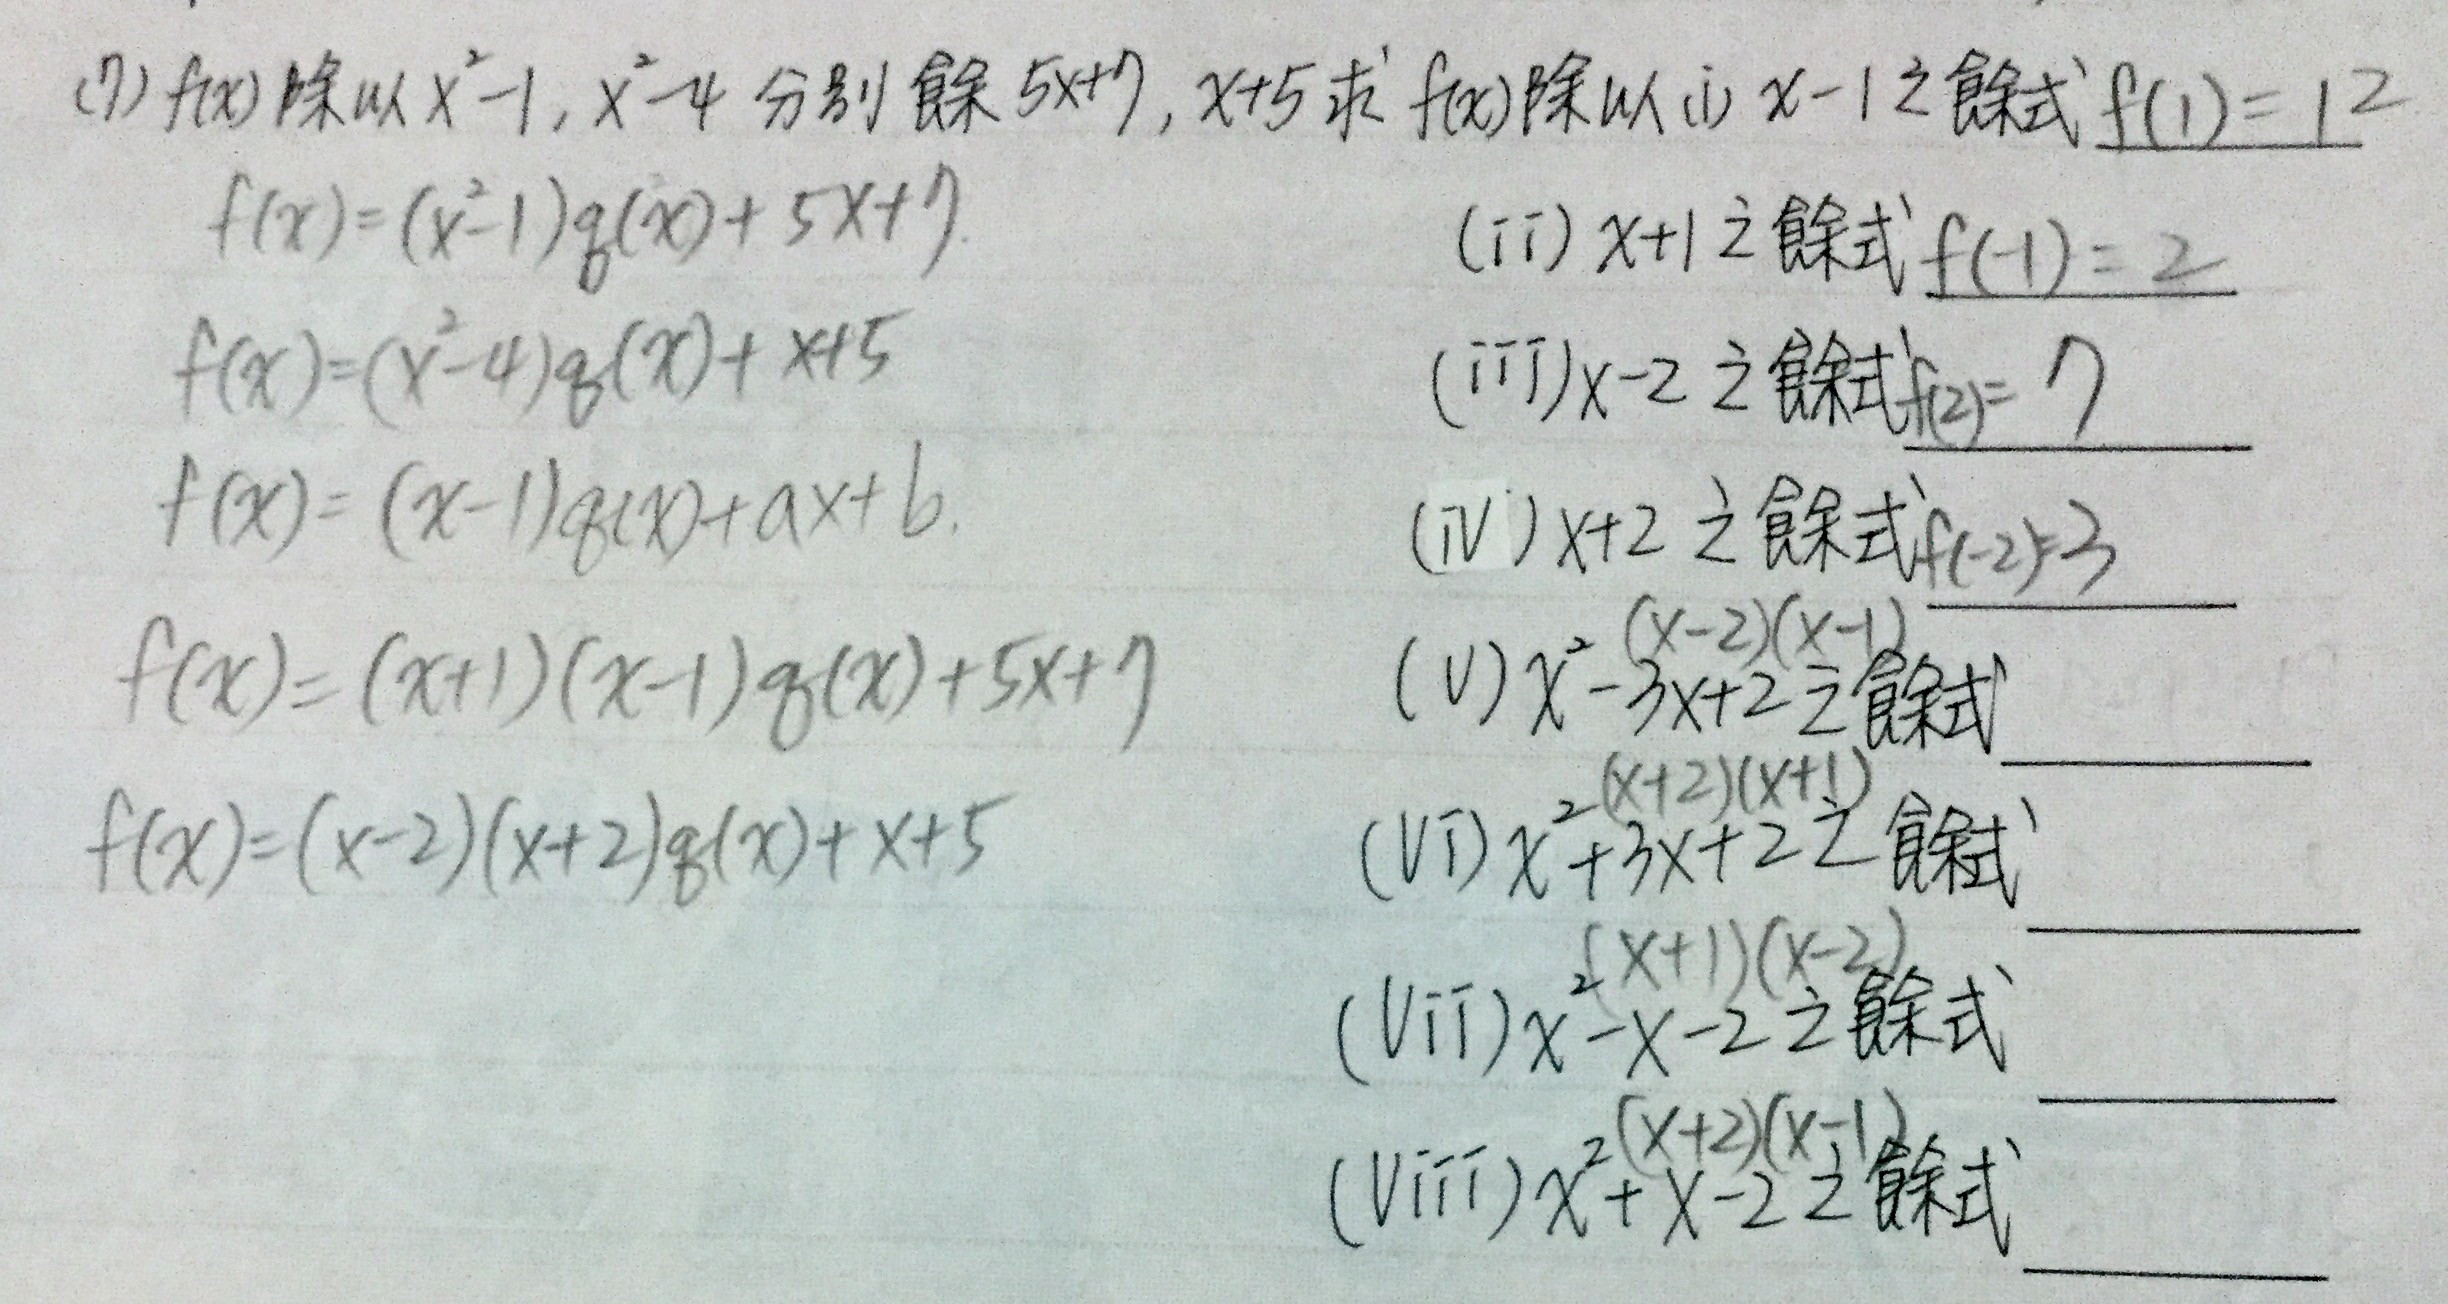 (7) f(x)除以x²-1, x²-4 分別餘 5x+7, x+5 求 f(x)除以(i) x-1之餘式 f(1)=12
f(x)=(x²-1)q(x)+5x+7.
(ii) x+1之餘式 f(-1)=2
f(x)=(x²-4)q(x)+x+5
(iii) x-2之餘式 f(2)=7
f(x)=(x-1)q(x)+ax+b.
(iv) x+2之餘式 f(-2)=3
f(x)=(x+1)(x-1)q(x)+5x+7
(x-2)(x-1)
(v) x²-3x+2之餘式
(x+2)(x+1)
f(x)=(x-2)(x+2)q(x)+x+5
(vi) x²+3x+2之餘式
(x+1)(x-2)
(vii) x²-x-2之餘式
(x+2)(x-1)
(viii) x²+x-2之餘式